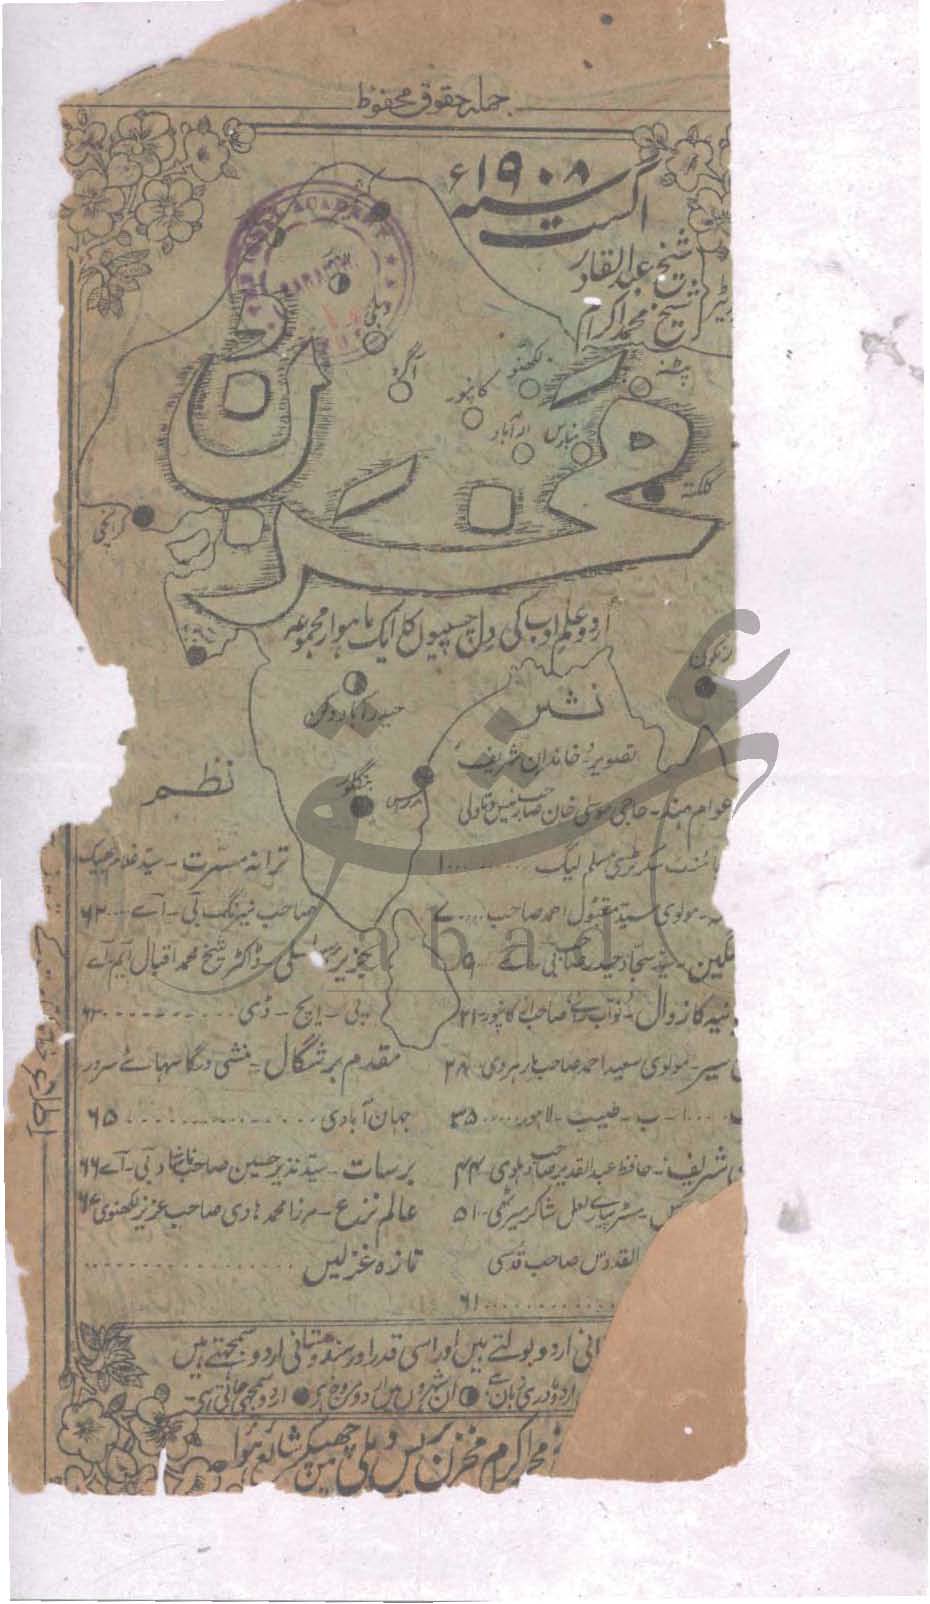 جملہ حقوق محفوظ
اگست سنہ ۱۹۰۸ء
شیخ عبدالقادر
شیخ محمد اکرام
دہلی
آگرہ
کانپور
لکھنؤ
پٹنہ
الہ آباد
بنارس
کلکتہ
کراچی
مخزن
اردو علم ادب کی دل چسپیوں کا ایک ماہوار مجموعہ
رنگون
بمبئی
حیدرآباد دکن
بنگلور
مدراس
نثر
تصویر۔ خاندان شریف
عوام ہند۔ حاجی موسیٰ خان صاحب رئیس دتاولی
سکرٹری مسلم لیگ ۱
مولوی سید مقبول احمد صاحب ۷
سید سجاد حیدر صاحب بی۔ اے ۹
کا زوال۔ نواب رائے صاحب از کانپور ۲۱
سیر۔ مولوی سعید احمد صاحب مارہروی ۲۸
ا۔ ب۔ طبیب۔ لاہور ۳۵
شریف۔ حافظ عبدالقدیر صاحب دہلوی ۴۴
پیارے لعل شاکر میرٹھی ۵۱
القدوس صاحب قدسی
۶۱
نظم
ترانہ مسرت۔ سید غلام بھیک
صاحب نیرنگ بی۔ اے ۶۲
جزیرہ سسلی۔ ڈاکٹر شیخ محمد اقبال ایم اے
پی۔ ایچ۔ ڈی
مقدم برشگال۔ منشی درگا سہائے سرور
جہان آبادی ۶۵
برسات۔ سید نذیر حسین صاحب ناشاد بی۔ اے ۶۶
عالم نزع۔ مرزا محمد ہادی صاحب عزیز لکھنوی
تازہ غزلیں
اردو بولتے ہیں اور اسی قدر اور ہندوستانی اردو سمجھتے ہیں
اردو مادری زبان ہے ان شہروں میں اردو مروج ہے اردو سمجھی جاتی ہے
محمد اکرام مخزن پریس دہلی میں چھپکر شائع ہوا
عشق
abad